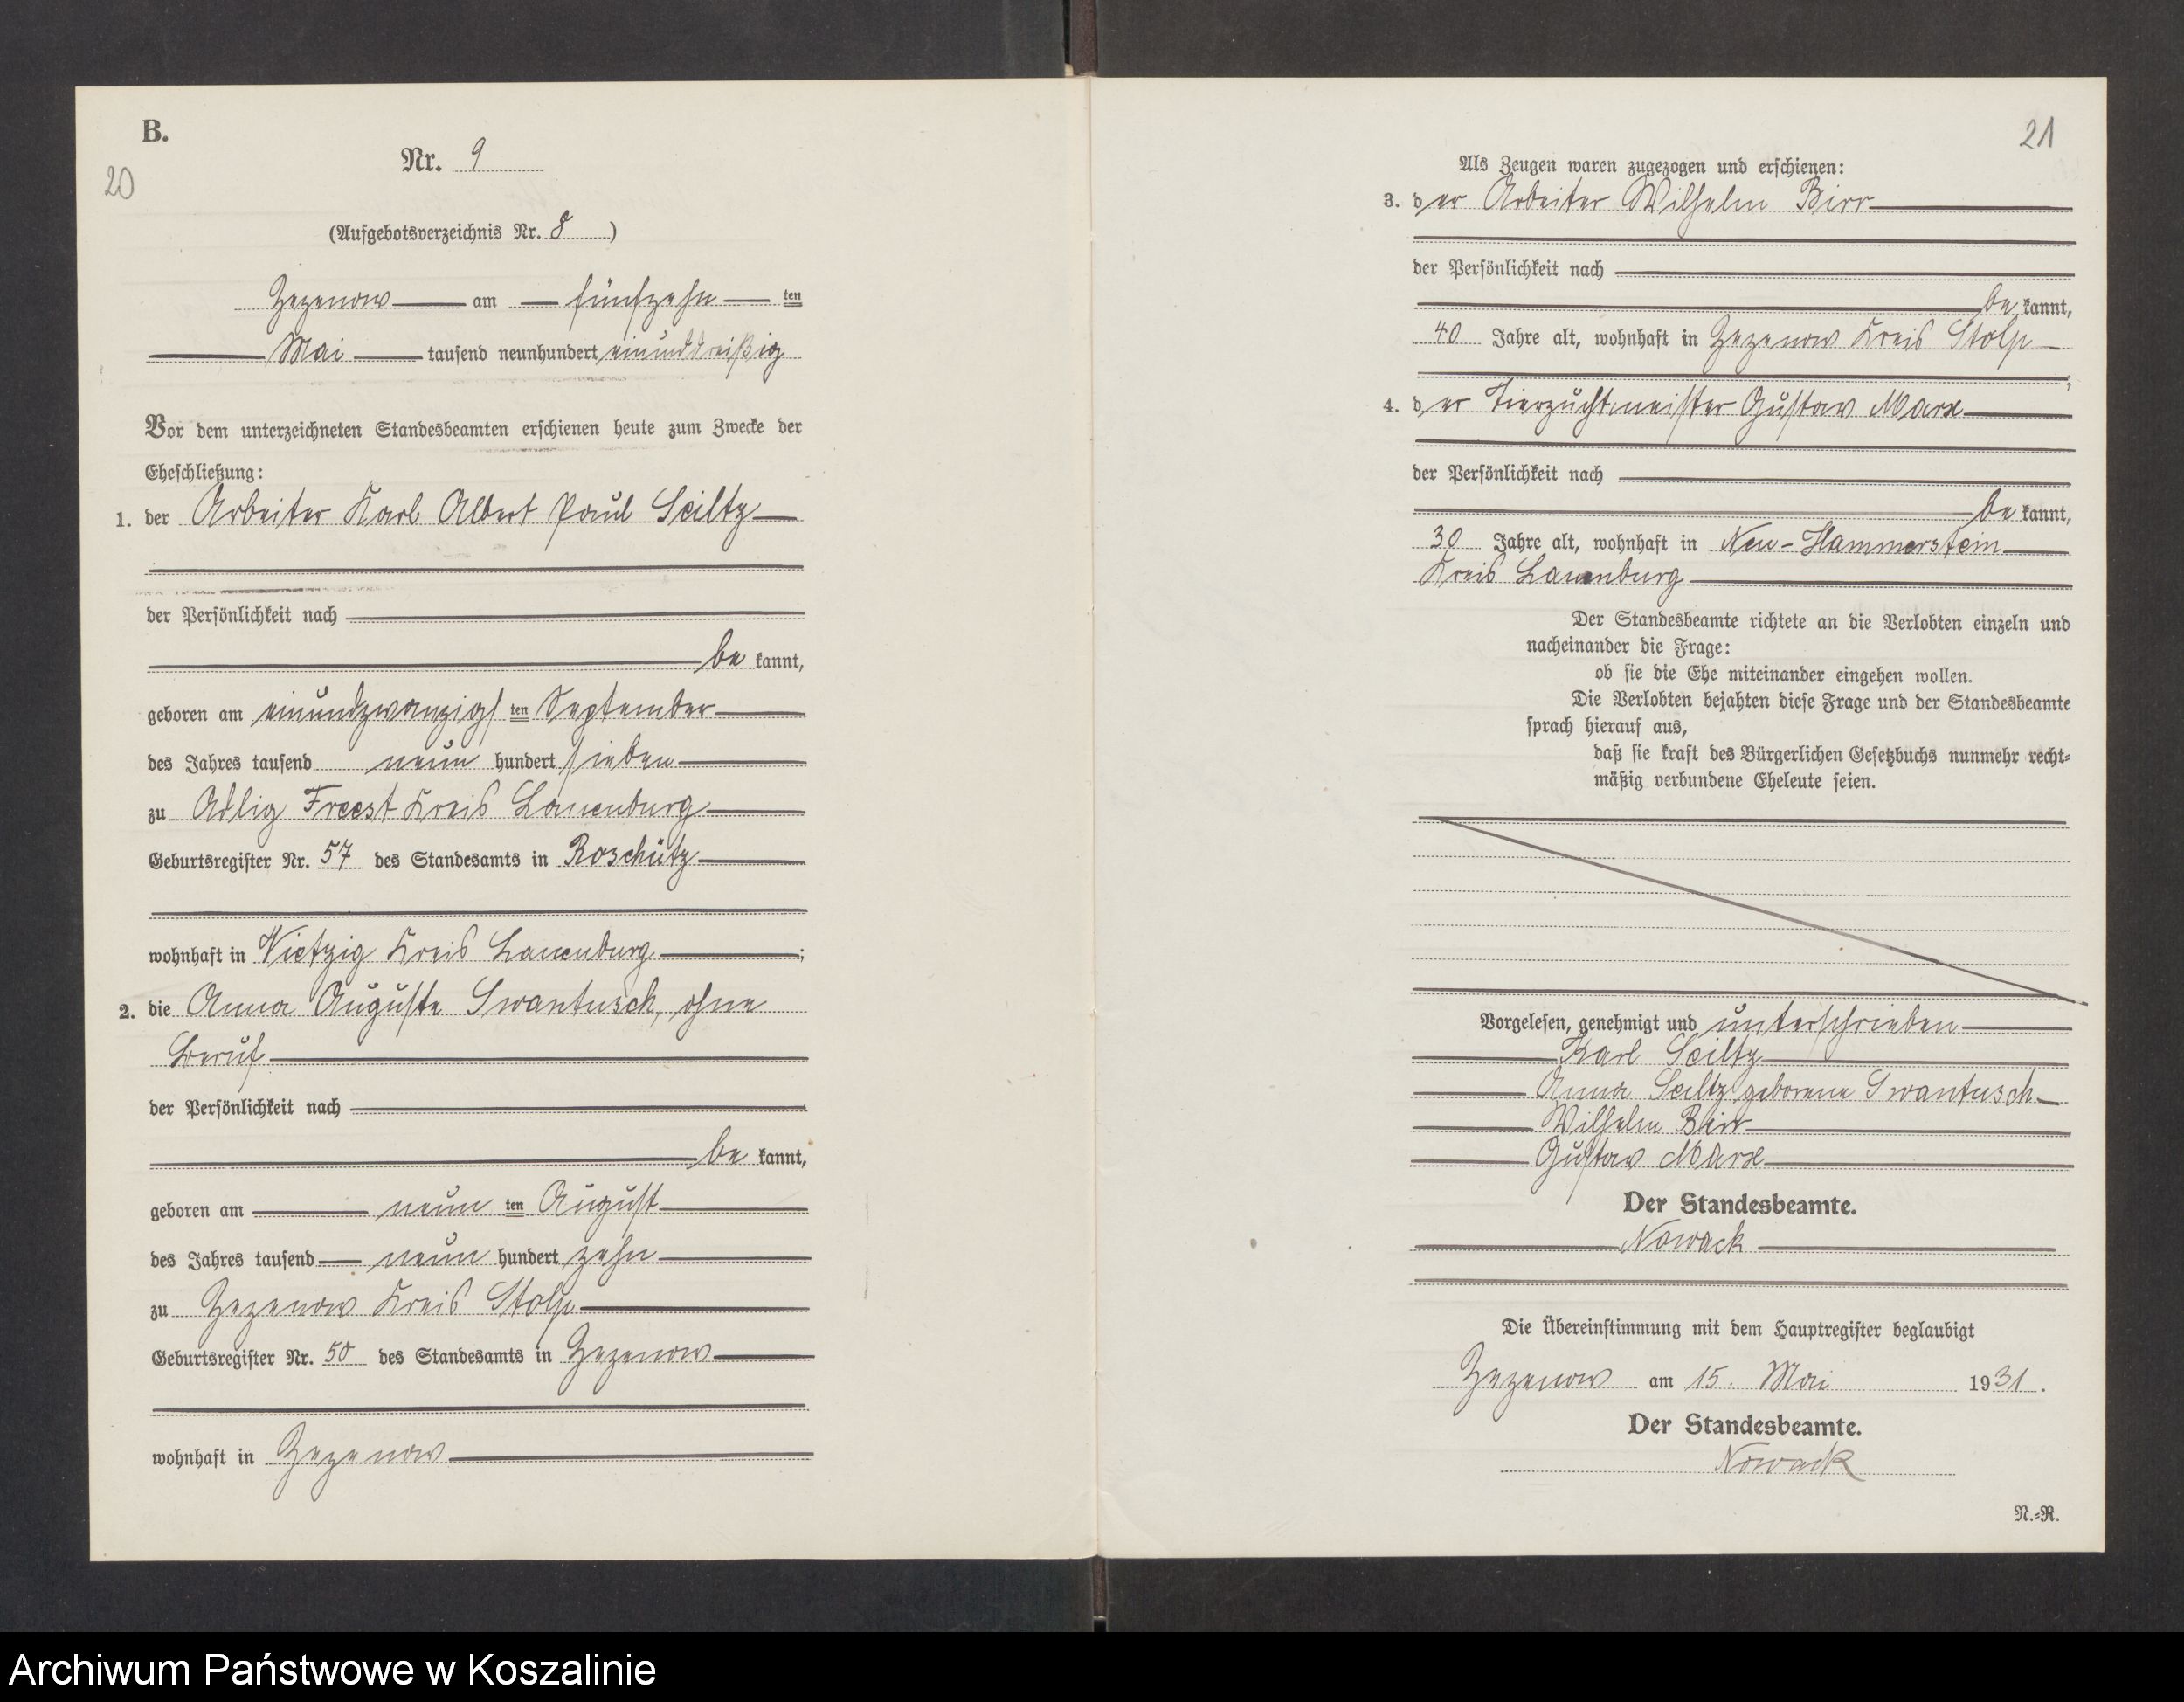 B.
Nr. 9
20
(Aufgebotsverzeichnis Nr. 8)
Zezenow am fünfzehn ten
Mai tausend neunhundert einunddreißig
Vor dem unterzeichneten Standesbeamten erschienen heute zum Zwecke der
Eheschließung:
1. der Arbeiter Karl Albert Paul Sciltz
der Persönlichkeit nach
be kannt,
geboren am einundzwanzigs ten September
des Jahres tausend neun hundert sieben
zu Adlig Freest Kreis Lauenburg
Geburtsregister Nr. 57 des Standesamts in Roschütz
wohnhaft in Vietzig Kreis Lauenburg ;
2. die Anna Auguste Swantusch, ohne
Beruf
der Persönlichkeit nach
be kannt,
geboren am neun ten August
des Jahres tausend neun hundert zehn
zu Zezenow Kreis Stolp
Geburtsregister Nr. 50 des Standesamts in Zezenow
wohnhaft in Zezenow
21
Als Zeugen waren zugezogen und erschienen:
3. der Arbeiter Wilhelm Birr
der Persönlichkeit nach
be kannt,
40 Jahre alt, wohnhaft in Zezenow Kreis Stolp
;
4. der Tierzuchtmeister Gustav Marx
der Persönlichkeit nach
be kannt,
30 Jahre alt, wohnhaft in Neu-Hammerstein
Kreis Lauenburg
Der Standesbeamte richtete an die Verlobten einzeln und
nacheinander die Frage:
ob sie die Ehe miteinander eingehen wollen.
Die Verlobten bejahten diese Frage und der Standesbeamte
sprach hierauf aus,
daß sie kraft des Bürgerlichen Gesetzbuchs nunmehr recht-
mäßig verbundene Eheleute seien.
Vorgelesen, genehmigt und unterschrieben
Karl Sciltz
Anna Sciltz geborene Swantusch
Wilhelm Birr
Gustav Marx
Der Standesbeamte.
Nowack
Die Übereinstimmung mit dem Hauptregister beglaubigt
Zezenow am 15. Mai 1931.
Der Standesbeamte.
Nowack
N.-R.
Archiwum Państwowe w Koszalinie